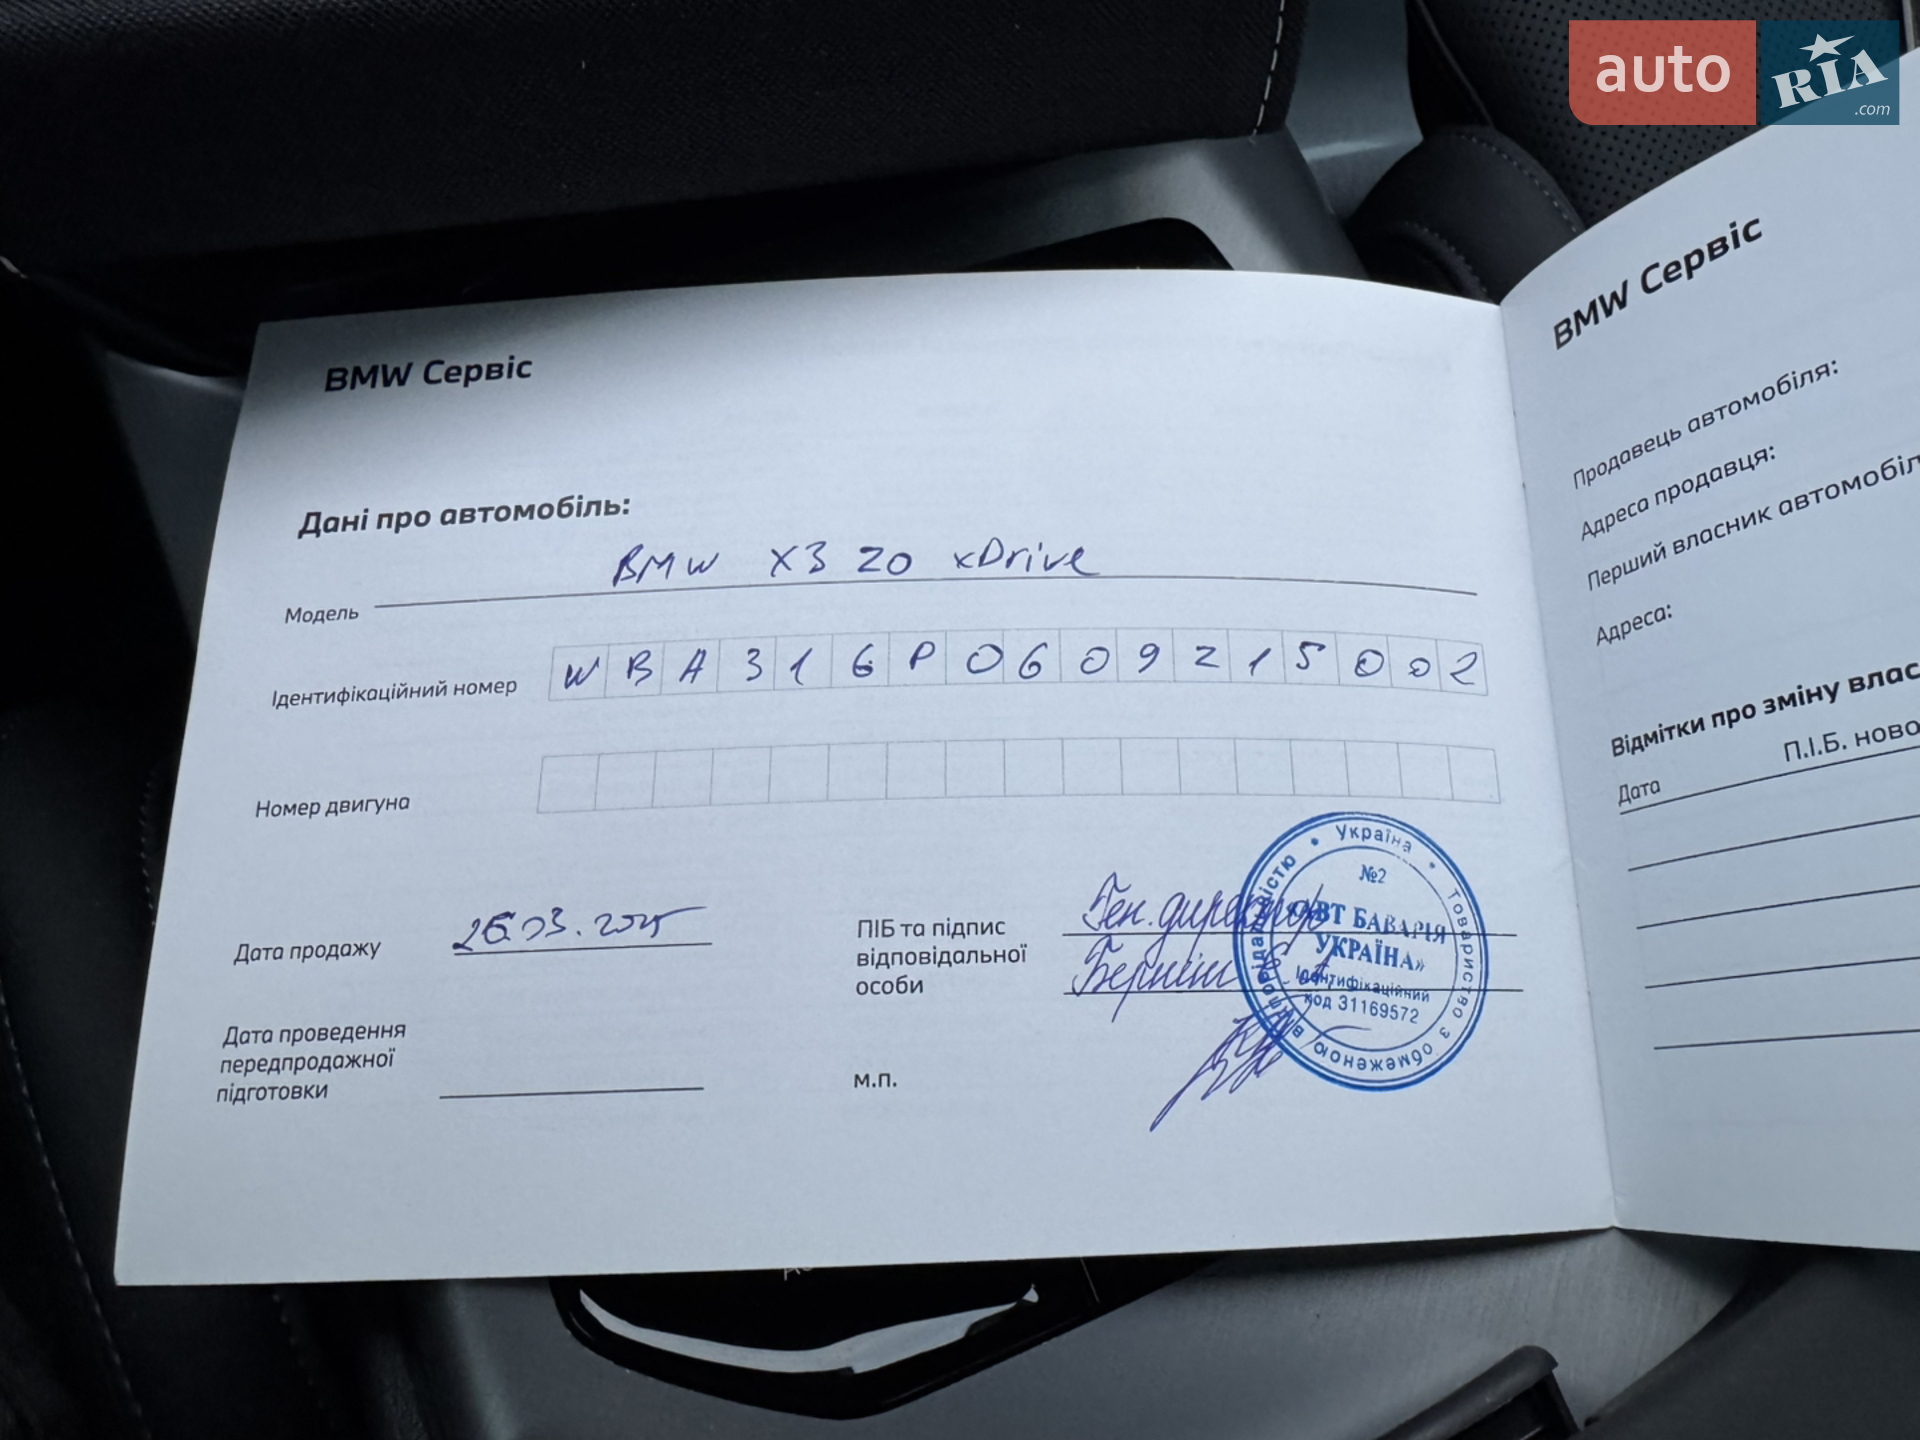 auto RIA .com
BMW Сервіс
Дані про автомобіль:
Модель BMW X3 20 xDrive
Ідентифікаційний номер W B A 3 1 6 P 0 6 0 9 2 1 5 0 0 2
Номер двигуна
Дата продажу 26.03.2025
Дата проведення
передпродажної
підготовки
ПІБ та підпис
відповідальної
особи
Ген. директор
м.п.
Україна • Товариство з обмеженою відповідальністю •
№2
«АВТ БАВАРІЯ
УКРАЇНА»
Ідентифікаційний
код 31169572
BMW Сервіс
Продавець автомобіля:
Адреса продавця:
Перший власник автомобіл
Адреса:
Відмітки про зміну влас
Дата П.І.Б. ново